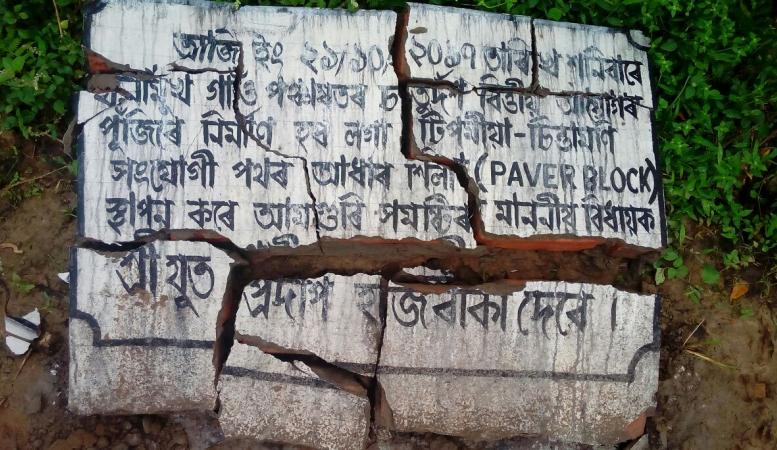 আজি ইং ২১/১০/২০১৭ তাৰিখ শনিবাৰে
গাওঁ পঞ্চায়তৰ চতুৰ্দশ বিত্তীয় আয়োগৰ
পুঁজিৰে নিৰ্মাণ হব লগা টিপমীয়া-চিন্তামণি
সংযোগী পথৰ আধাৰ শিলা (PAVER BLOCK)
স্থাপন কৰে আমগুৰি সমষ্টিৰ মাননীয় বিধায়ক
শ্ৰীযুত প্ৰদীপ হাজৰীকা দেৱে ।